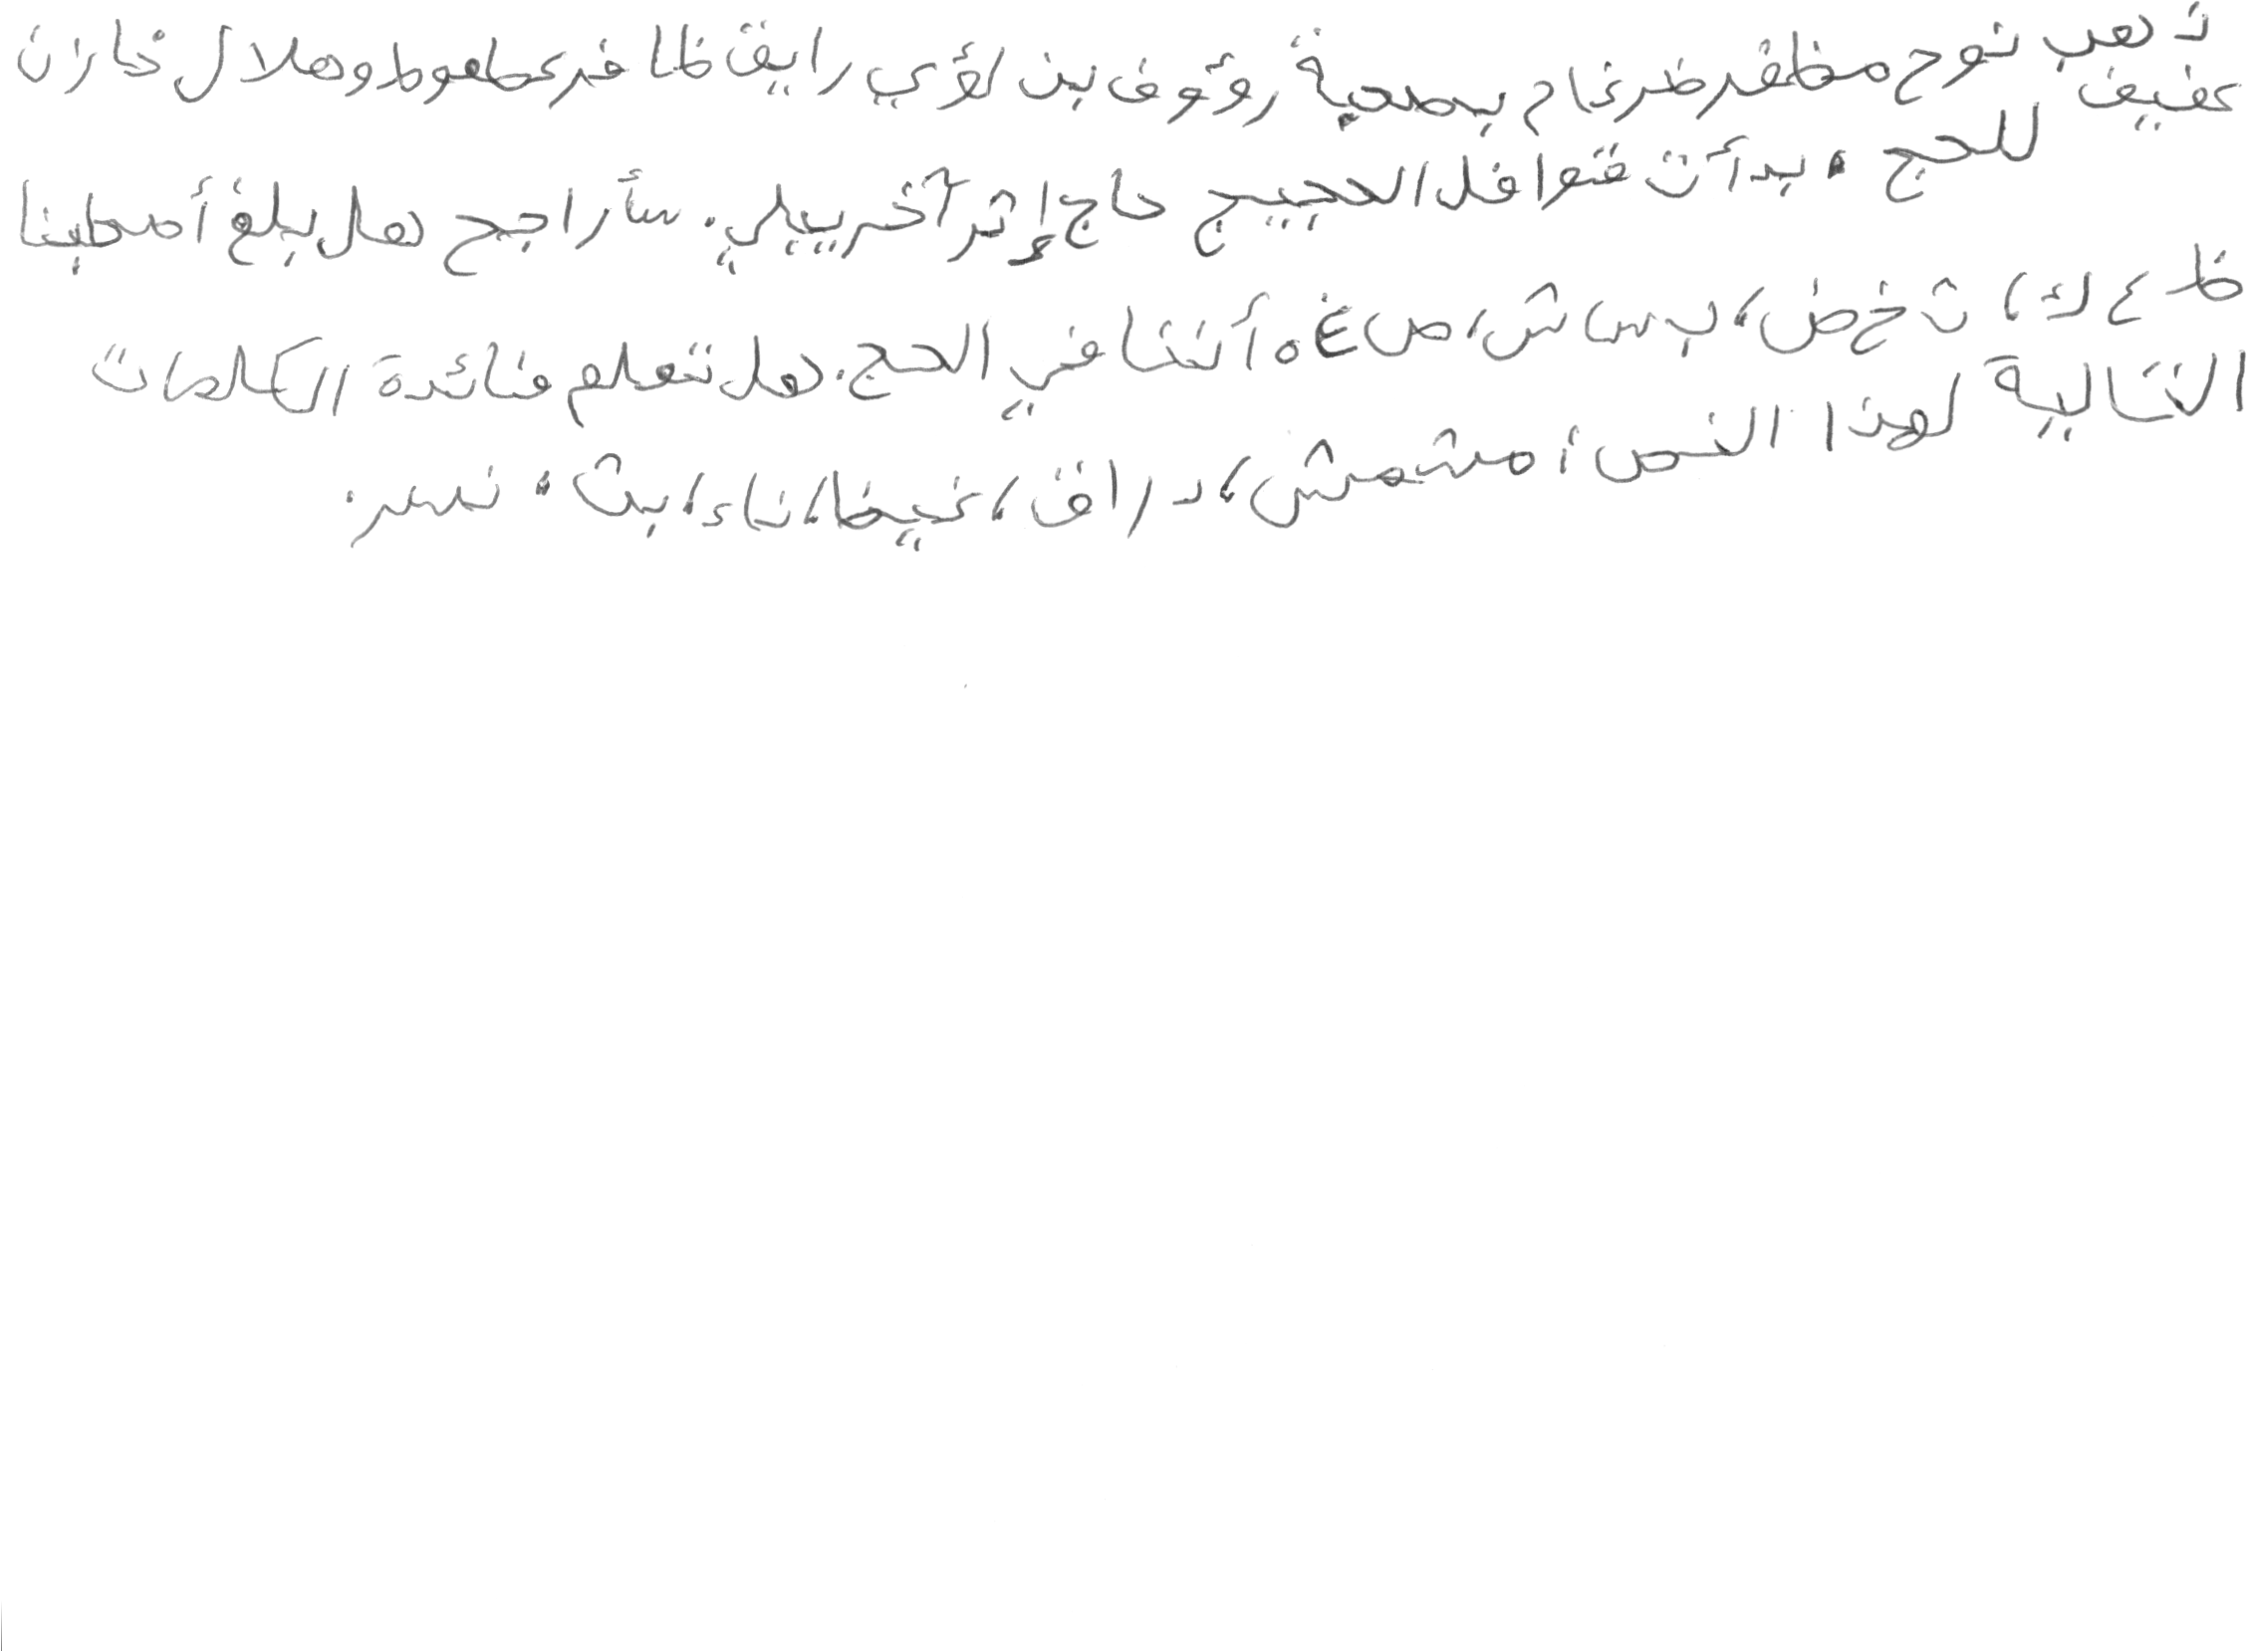 ذهب نوح مظفر ضرغام بصحبة رؤوف بن لؤي رايق ظافر عطعوط وهلال خازن
عفيف للحج . بدأت قوافل الحجيج حاج إثر آخر يلي . سأراجح هل يبلغ أصطينا
ظ ع ك ، ث خ ض ، ب سا ش ، ص غ ه أننا في الحج . هل تعلم فائدة الكلمات
التالية لهذا النص : مشمش ، د راق ، غيظ ، ناء ، بث ، نسر .